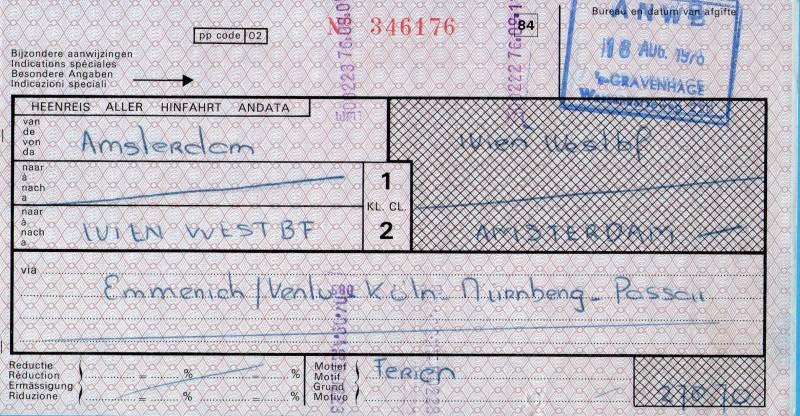 Bureau en datum van afgifte
84
ANWB
Nº 346176
18 AUG. 1976
pp code 02
's-GRAVENHAGE
Bijzondere aanwijzingen
Indications spéciales
Besondere Angaben
Indicazioni speciali
HEENREIS ALLER HINFAHRT ANDATA
van
de
von
da
Amsterdam
Wien Westbf
naar
à
nach
a
1
KL. CL.
2
naar
à
nach
a
WIEN WESTBF
AMSTERDAM
via
Emmerich/Venlo - Köln - Nürnberg - Passau
Reductie
Réduction
Ermässigung
Riduzione
= % = %
= % = %
Motief
Motif
Grund
Motivo
Ferien